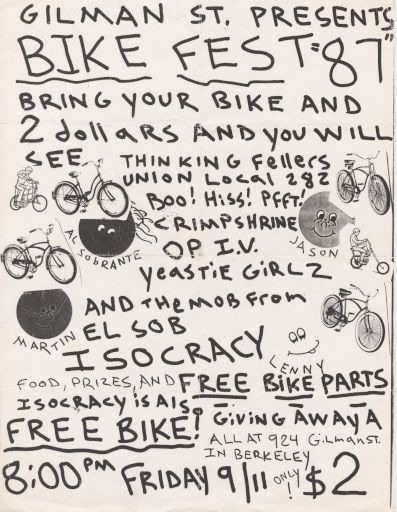 GILMAN ST. PRESENTS
BIKE FEST "87"
BRING YOUR BIKE AND
2 dollars AND you WILL
SEE
THINKING Fellers
UNION Local 282
Boo! Hiss! PFFT!
CRIMPSHRINE
AL SOBRANTE
OP I.V.
JASON
YeastiE GiRLZ
AND the MOB From
EL SOB
MARTIN
ISOCRACY
LENNY
FOOD, PRIZES, AND FREE BiKE PARTS
ISOCRACY is Also Giving AWAY A
FREE BIKE!
ALL AT 924 GilmanST.
IN BERKELEY
8:00 PM FRIDAY 9/11 ONLY! $2